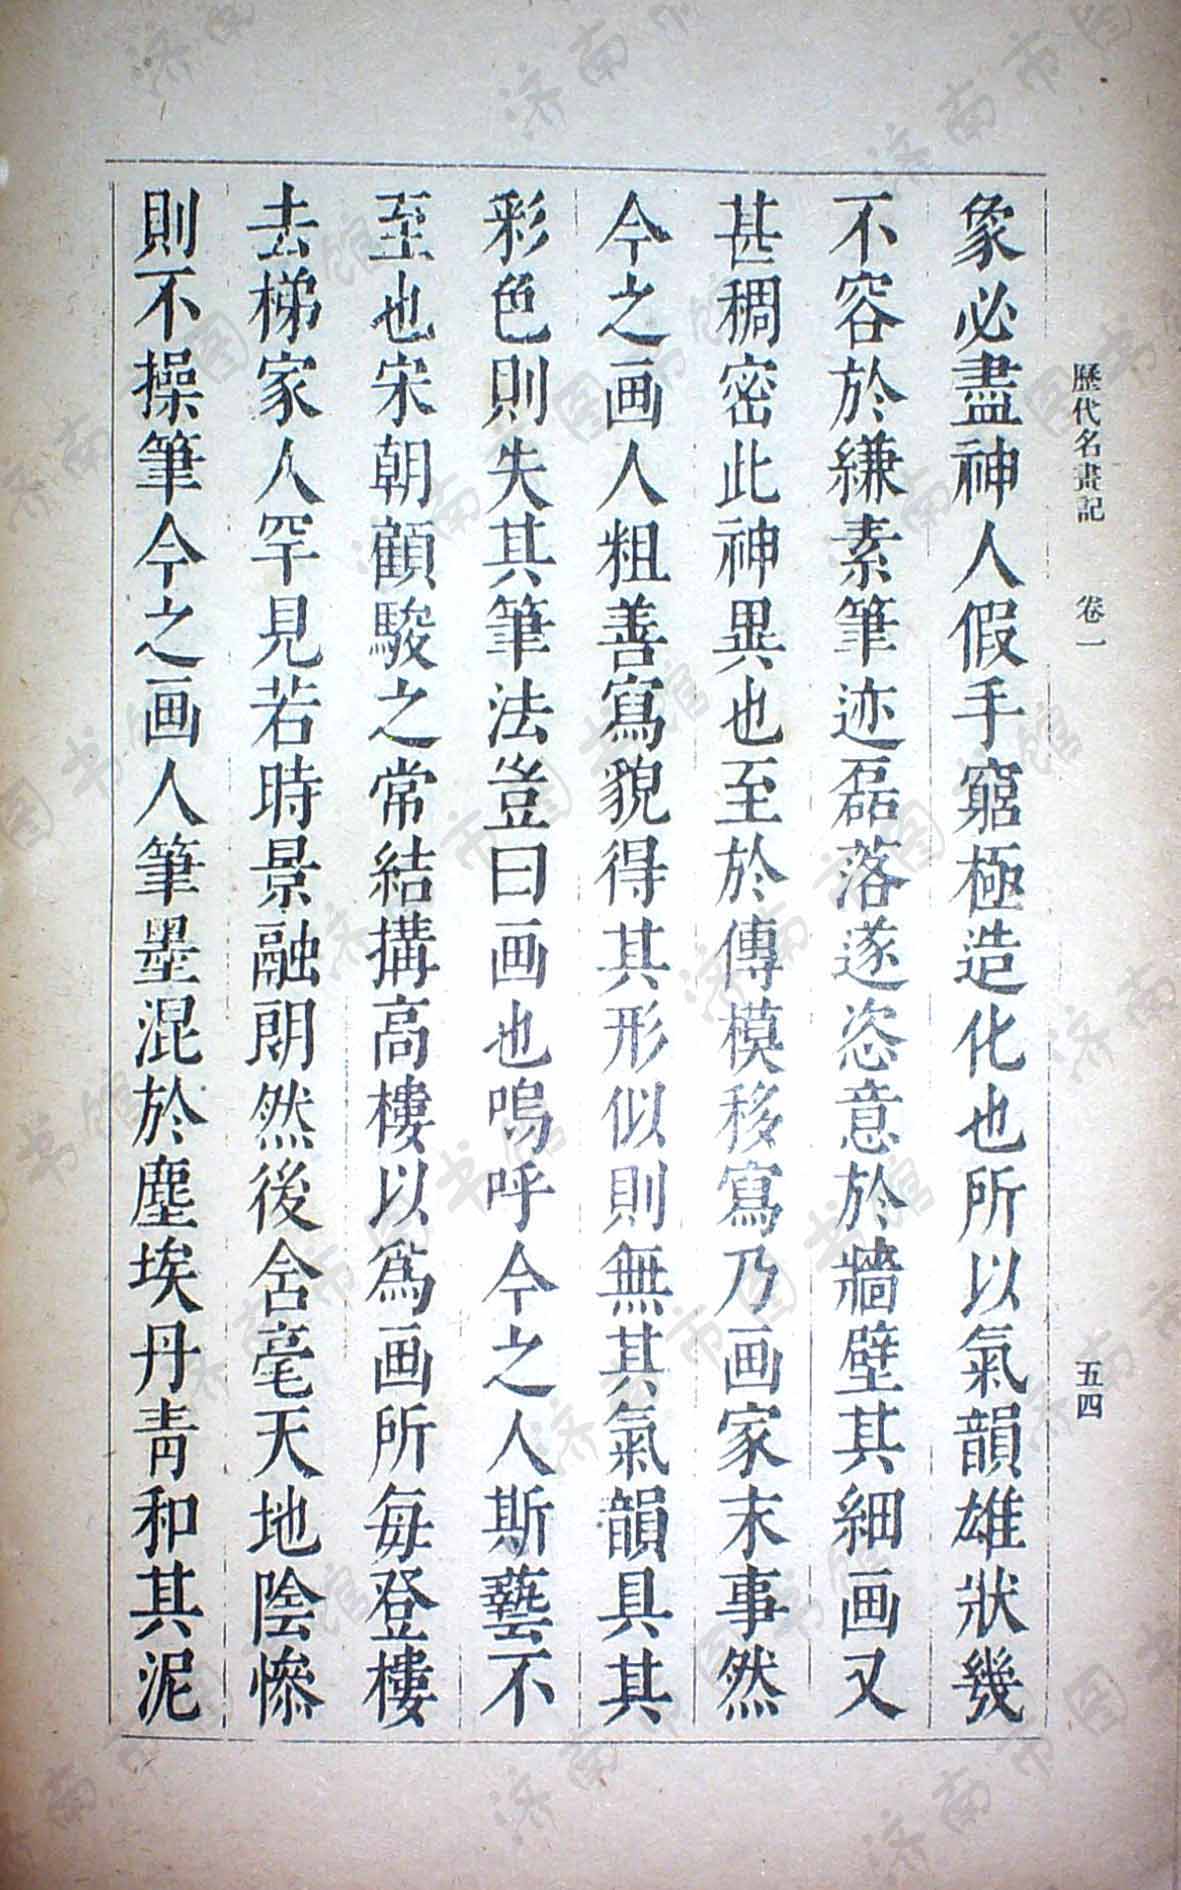 歷代名畫記　卷一　五四
象必盡神人假手窮極造化也所以氣韻雄狀幾
不容於縑素筆迹磊落遂恣意於牆壁其細画又
甚稠密此神異也至於傳模移寫乃画家末事然
今之画人粗善寫貌得其形似則無其氣韻具其
彩色則失其筆法豈曰画也嗚呼今之人斯藝不
至也宋朝顧駿之常結搆高樓以為画所每登樓
去梯家人罕見若時景融朗然後含毫天地陰慘
則不操筆今之画人筆墨混於塵埃丹青和其泥
济南市图书馆